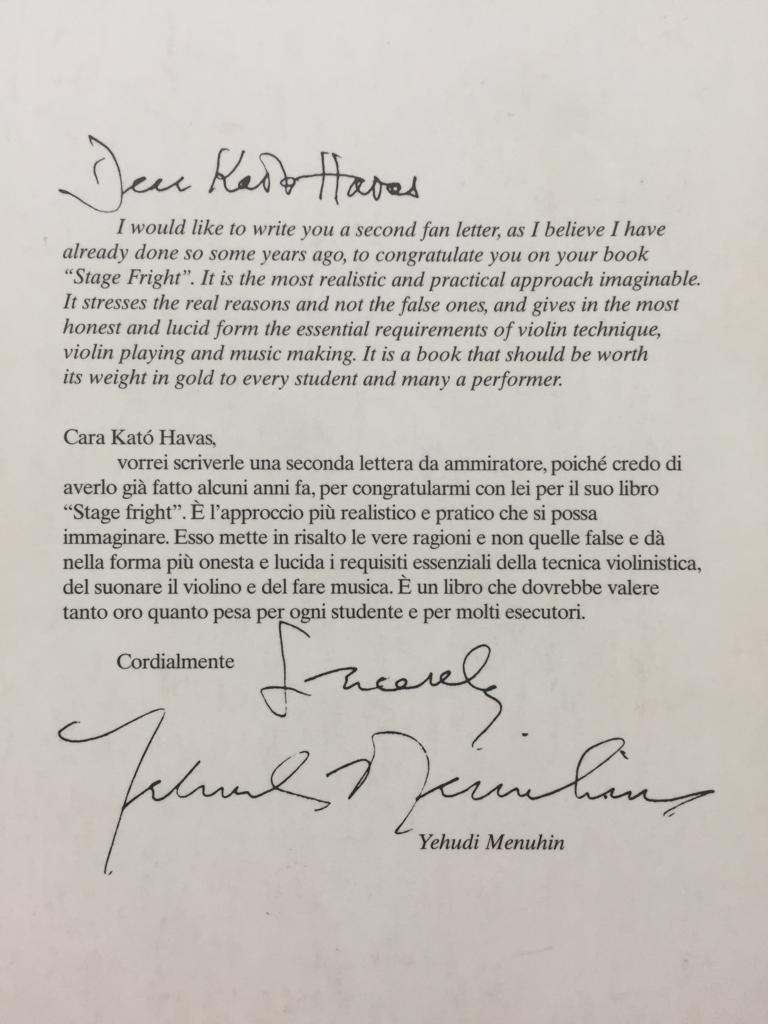 Dear Kató Havas
I would like to write you a second fan letter, as I believe I have
already done so some years ago, to congratulate you on your book
“Stage Fright”. It is the most realistic and practical approach imaginable.
It stresses the real reasons and not the false ones, and gives in the most
honest and lucid form the essential requirements of violin technique,
violin playing and music making. It is a book that should be worth
its weight in gold to every student and many a performer.
Cara Kató Havas,
vorrei scriverle una seconda lettera da ammiratore, poiché credo di
averlo già fatto alcuni anni fa, per congratularmi con lei per il suo libro
“Stage fright”. È l’approccio più realistico e pratico che si possa
immaginare. Esso mette in risalto le vere ragioni e non quelle false e dà
nella forma più onesta e lucida i requisiti essenziali della tecnica violinistica,
del suonare il violino e del fare musica. È un libro che dovrebbe valere
tanto oro quanto pesa per ogni studente e per molti esecutori.
Cordialmente Sincerely
Yehudi Menuhin
Yehudi Menuhin